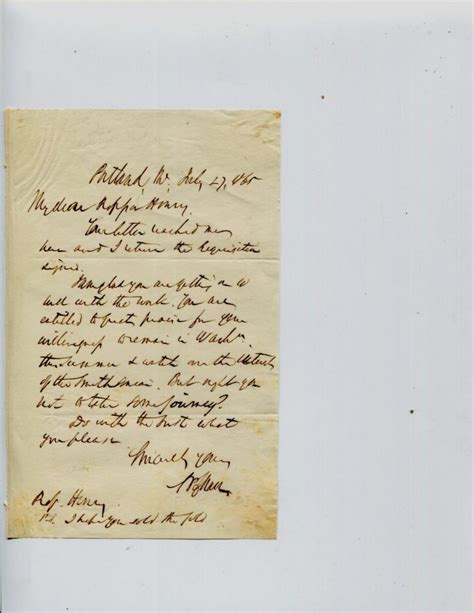 Portland, Me, July 27, 1865
My dear Prof. Henry,
Your letter reached me
here and I return the Requisition
signed.
I am glad you are getting on so
well with the work. You are
entitled to great praise for your
willingness to remain in Washn
this Summer & watch over the Interests
of the Smithsonian. But ought you
not to take some journey?
Do with the what
you please
Sincerely yours
Prof. Henry
P.S. I hope you sold the gold